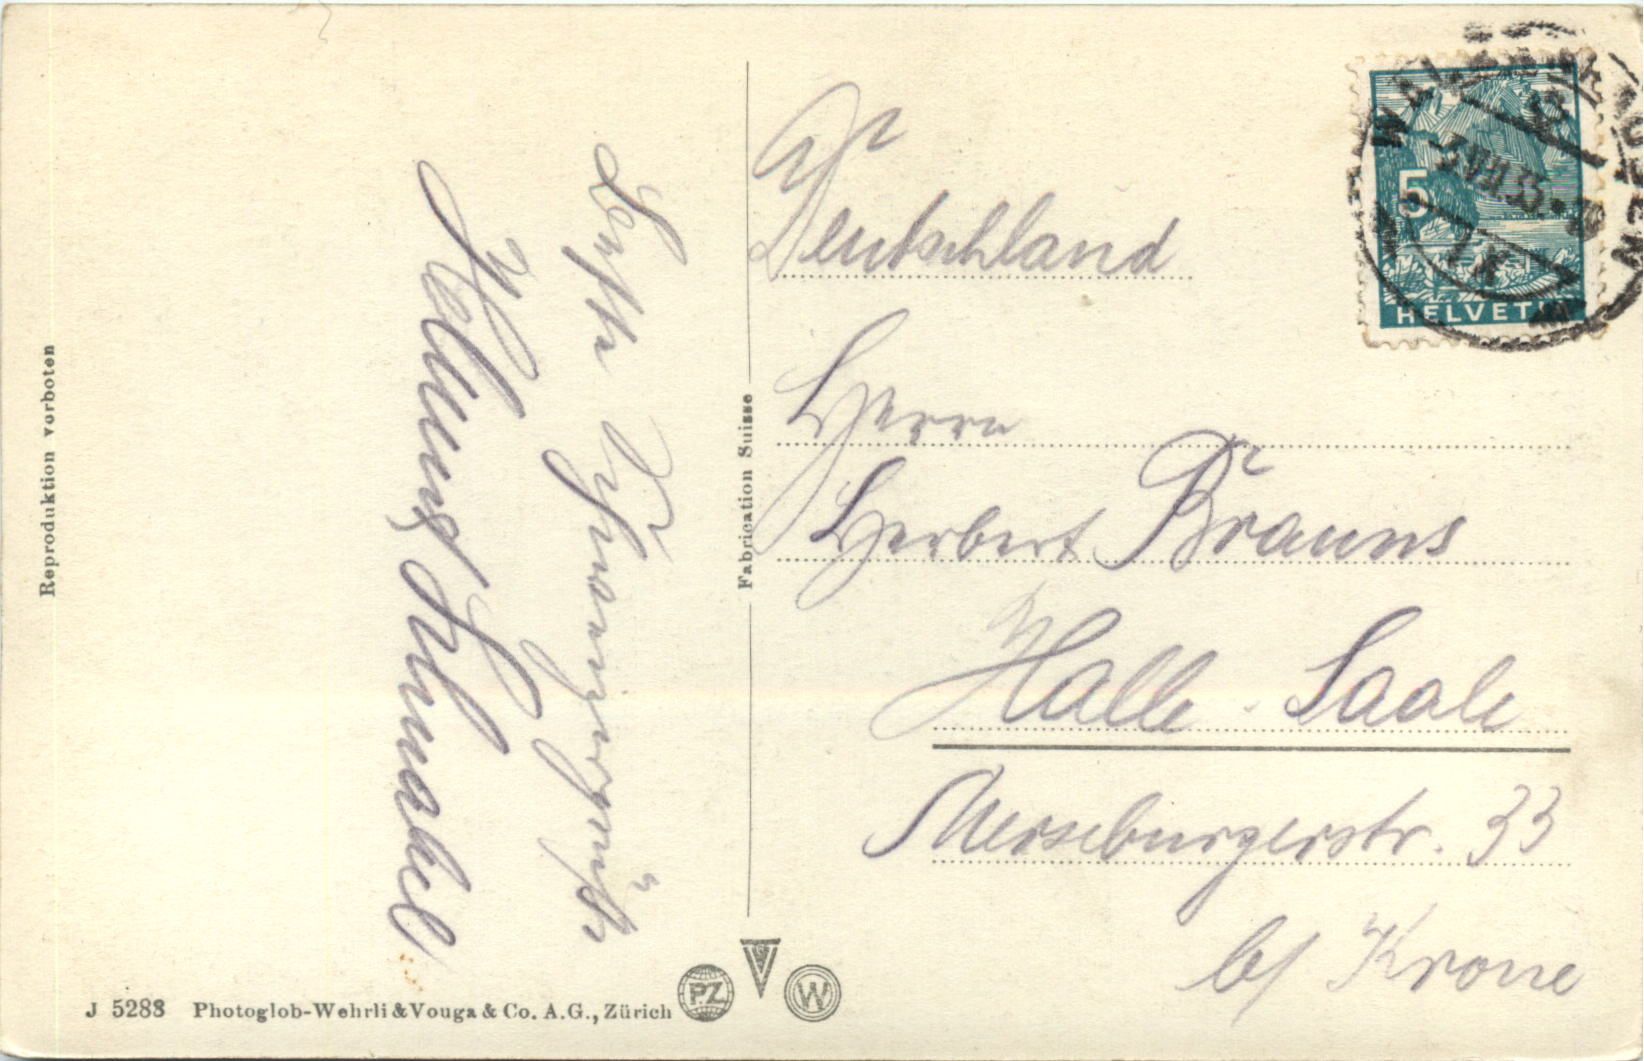 Beste Schweizergrüße
Hellmut Schnabel
Deutschland
Herrn
Herbert Brauns
Halle - Saale
Merseburgerstr. 33
b/ Krone
HELVETIA
5
VII.35
Reproduktion vorboten
Fabrication Suisse
J 5288 Photoglob-Wehrli & Vouga & Co. A.G., Zürich
PZ
W